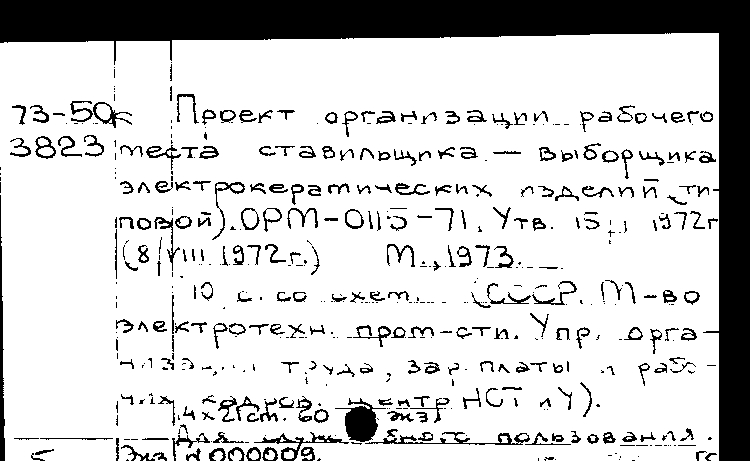 73-50к Проект организации рабочего
3823 места ставильщика — выборщика
электрокерамических изделий (ти-
повой). ОРМ-0115-71. Утв. 15 1972г
(8/VIII 1972г.) М., 1973.
10 с. со схем. (СССР. М-во
электротехн. пром-сти. Упр. орга-
низации труда, зар. платы и рабо-
чих кадров. Центр НОТ и У).
21см. 60 экз
Для служебного пользования.
Экз 000009.